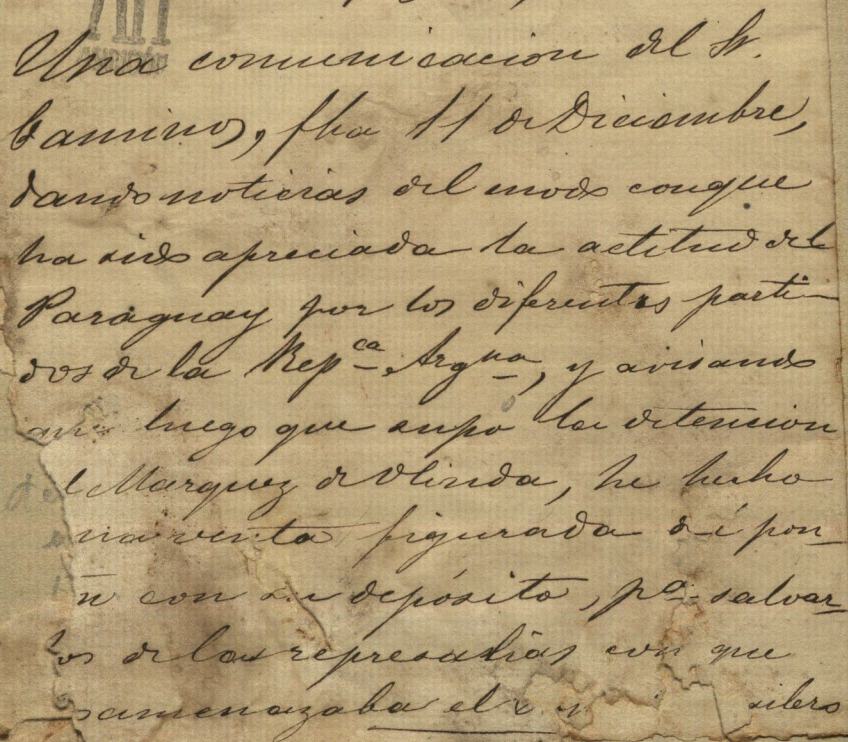 Una comunicacion del Sr.
Caminos, fha 11 de Diciembre,
dando noticias del modo con que
ha sido apreciada la actitud del
Paraguay por los diferentes parti-
dos de la Repca Argna, y avisando
que luego que supo la detencion
l Marquez de Olinda, he hecho
na venta figurada de
n con su depósito, pa salvar-
los de las represalias con que
samenazaba el